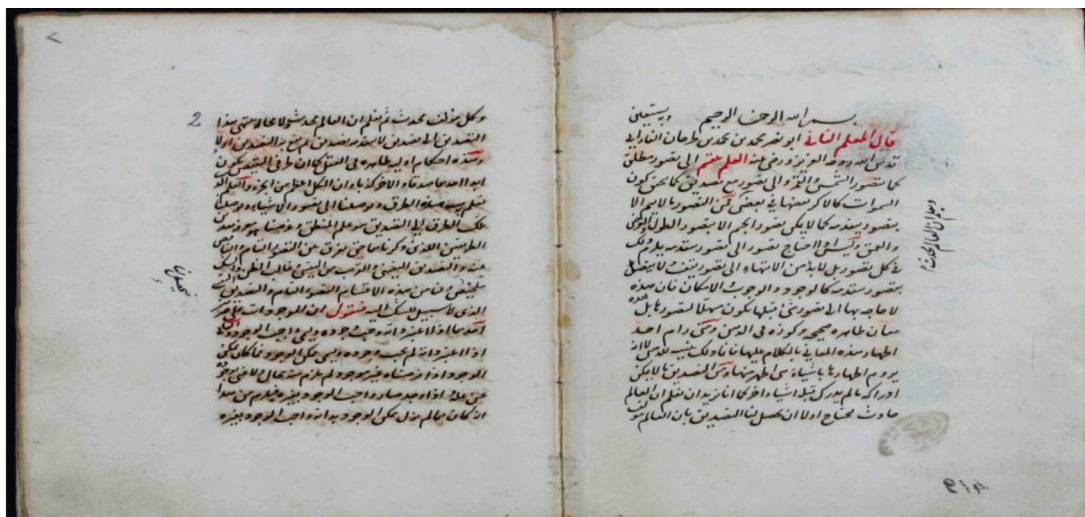 بسم الله الرحمن الرحيم
قال المعلم الثاني ابو نصر محمد بن محمد بن طرخان الفارابي
قدس الله روحه العزيز ورضي عنه العلم ينقسم الى تصور مطلق
كما يتصور الشمس والقمر والى تصور مع تصديق كما يتحقق كون
السموات كالاكر بعضها في بعض فمن التصور ما لا يتم الا
بتصور يتقدمه كما لا يمكن تصور الجسم الا بتصور الطول والعرض
والعمق وليس اذا احتاج تصور الى تصور يتقدمه يلزم ذلك
في كل تصور بل لا بد من الانتهاء الى تصور يقف لا يتصل
بتصور يتقدمه كالوجود والوجوب والامكان فان هذه
لا حاجة بها الى تصور شئ قبلها يكون لتصورها بل هذه
معان ظاهرة صحيحة مركوزة في الذهن ومتى رام احد
اظهار هذه المعاني بالكلام عليها فانما ذلك تنبيه للذهن لا انه
يروم اظهارها باشياء هي اظهر منها ومن التصديق ما لا يمكن
ادراكه ما لم يدرك قبله اشياء اخر كما انا نريد ان نعلم ان العالم
حادث فيحتاج اولا ان يحصل لنا التصديق بان العالم مؤلف
2
وكل مؤلف محدث ثم نعلم ان العالم محدث ولا محالة ينتهى هذا
التصديق الى تصديق لا يتقدمه تصديق
وهذه احكام اولية ظاهرة في العقل كما ان طرفي النقيض يكون
ابدا احدهما صدقا والاخر كذبا وان الكل اعظم من الجزء والعلم الذي
نعلم به هذه الطرق ويوصلنا الى تصور الاشياء والى
تلك الطرق الى التصديق هو علم المنطق وغرضنا هو معرفة
الطريقين اللذين ذكرنا حتى نفرق بين التصور التام والناقص
عنه والتصديق اليقيني والقريب من اليقيني وغالب الظن والشك
من هذه الاقسام التصور التام والتصديق
الذي لا سبيل للشك اليه فنقول ان الموجودات على ضربين
احدهما اذا اعتبر ذاته لم يجب وجوده ويسمى ممكن الوجود
الوجود اذا فرضناه غير موجود لم يلزم منه محال لا غنى بوجوده
عن علة واذا وجد صار واجب الوجود بغيره فيلزم من هذا
ان كان مما لم يزل ممكن الوجود بذاته واجب الوجود بغيره